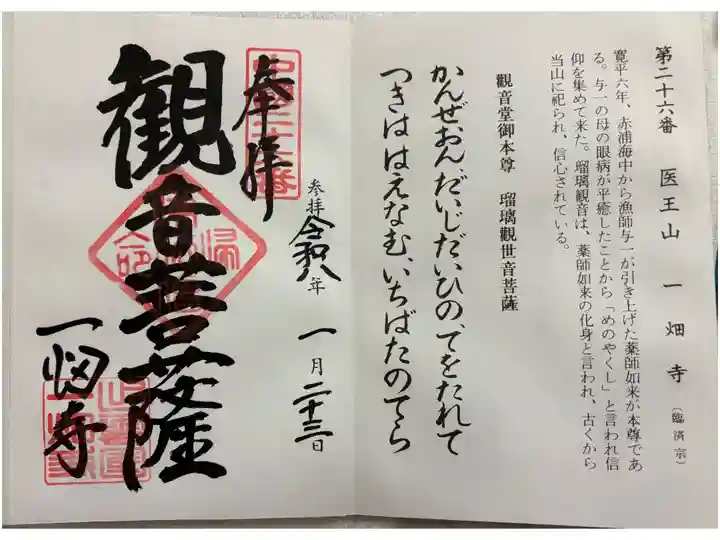 第二十六番　医王山　一畑寺（臨済宗）
寛平六年、赤浦海中から漁師与一が引き上げた薬師如来が本尊であ
る。与一の母の眼病が平癒したことから「めのやくし」と言われ信
仰を集めて来た。瑠璃観音は、薬師如来の化身と言われ、古くから
当山に祀られ、信心されている。
觀音堂御本尊　瑠璃觀世音菩薩
かんぜおんだいじだいひの、てをたれて
つきははえなむ、いちばたのてら
奉拝
参拝令和八年　一月二十三日
観音菩薩
一畑寺